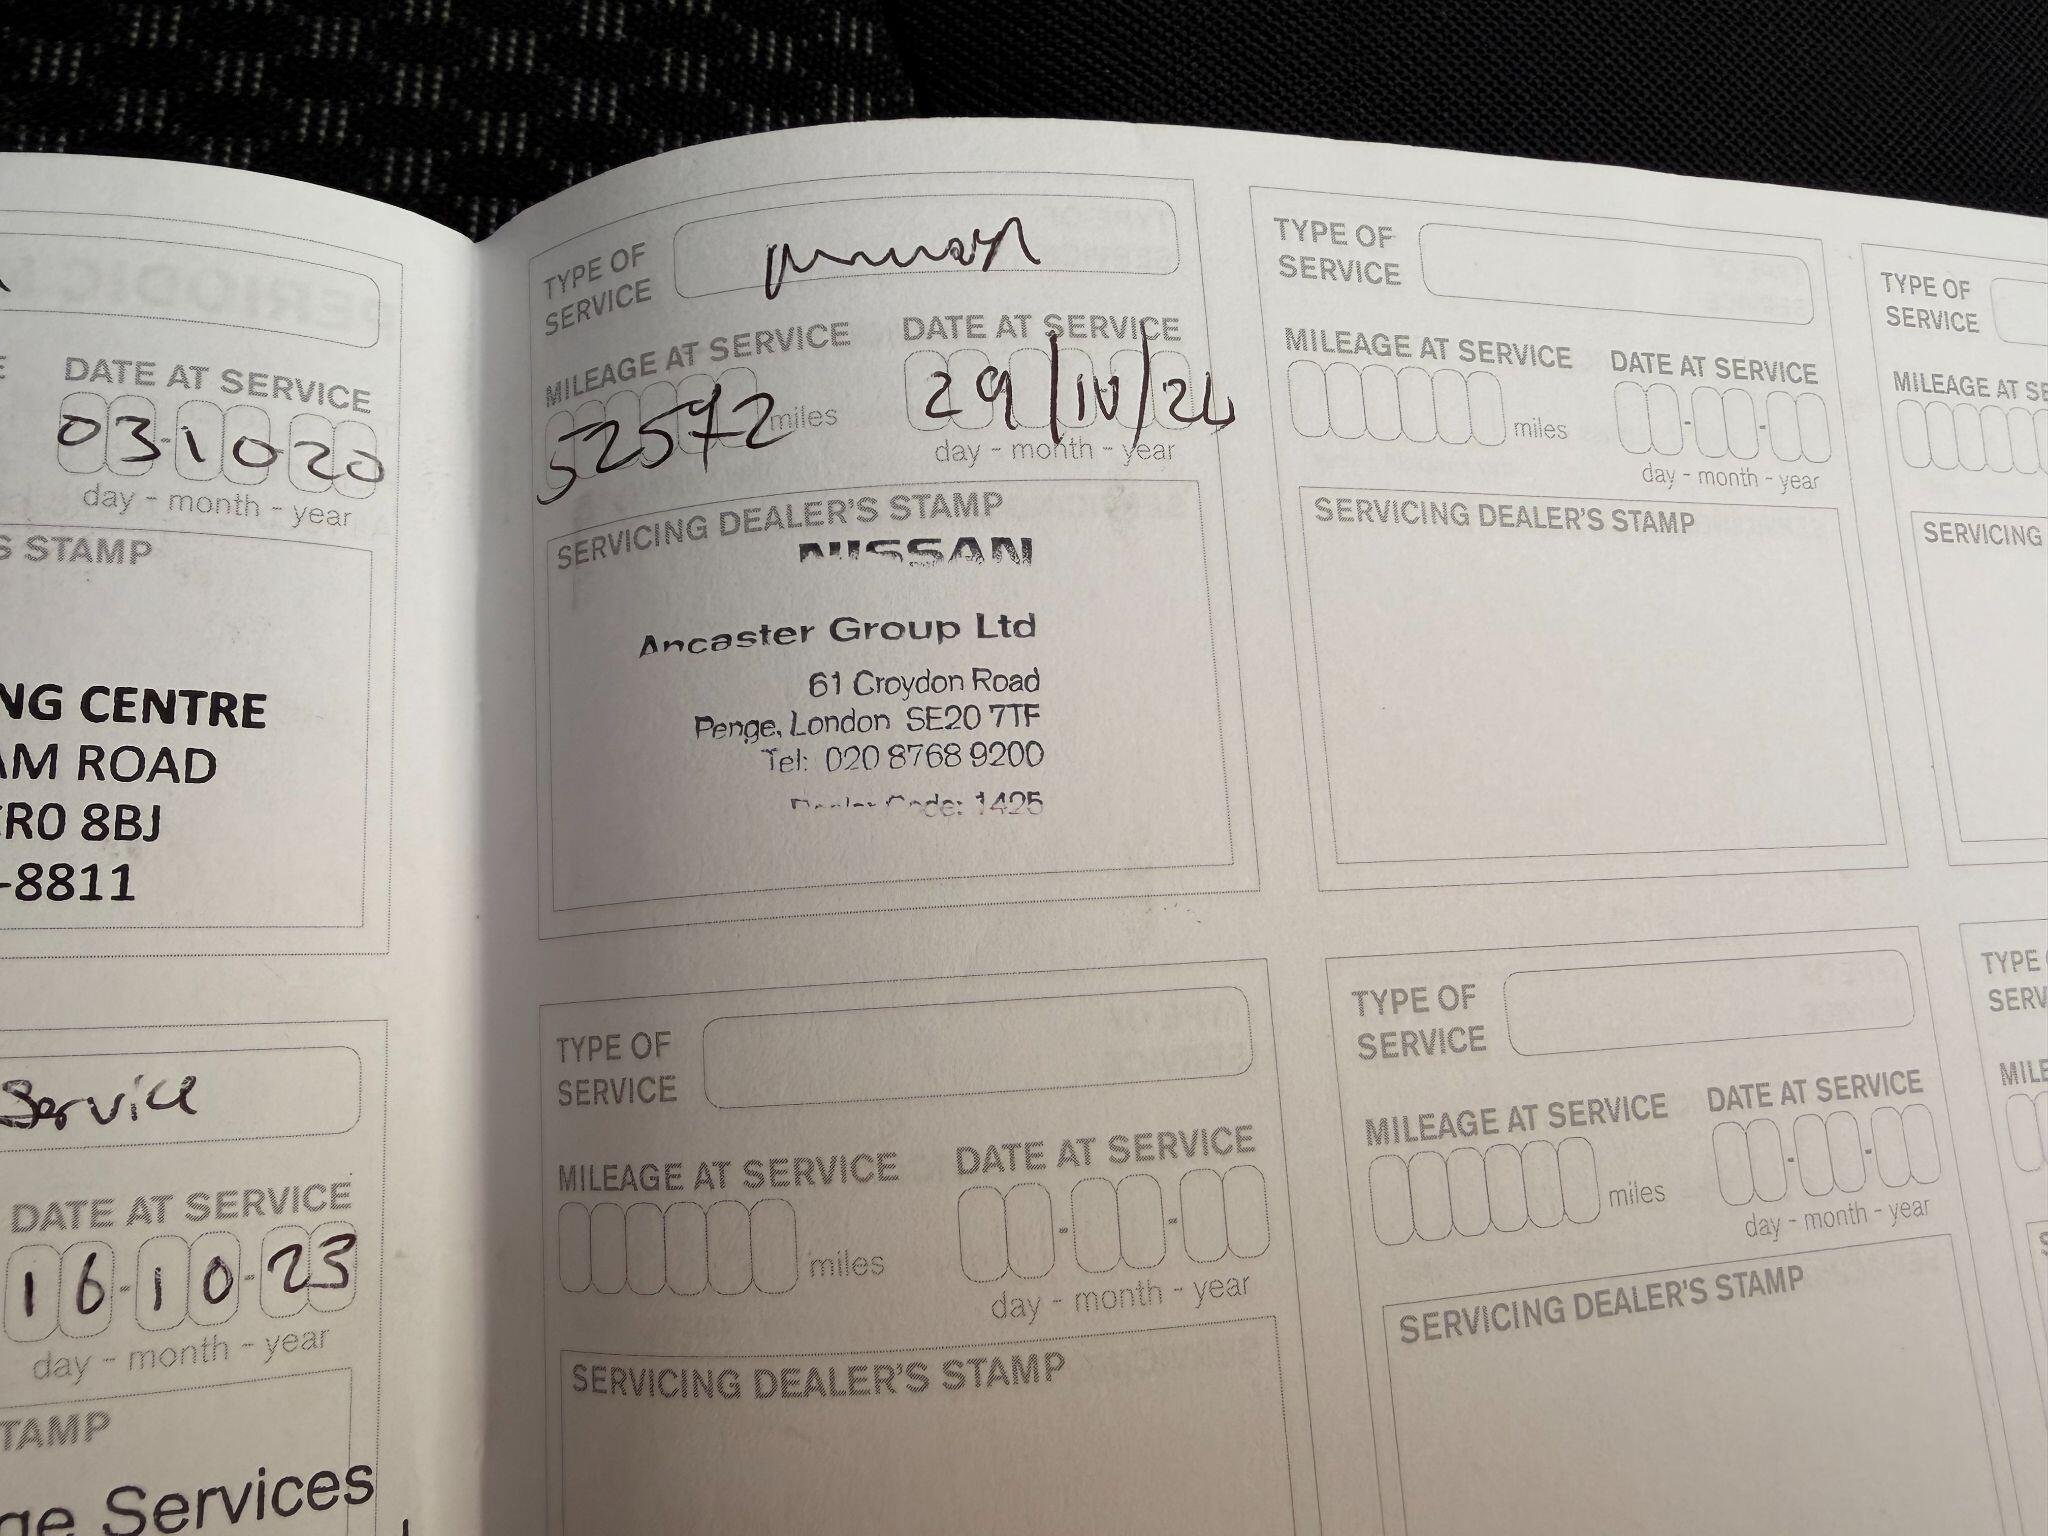 DATE AT SERVICE
03-10-20
day - month - year
S STAMP
NG CENTRE
AM ROAD
CR0 8BJ
-8811
Service
DATE AT SERVICE
16-10-23
day - month - year
TAMP
ge Services
TYPE OF
SERVICE
MILEAGE AT SERVICE
DATE AT SERVICE
52572 miles
29/10/24
day - month - year
SERVICING DEALER'S STAMP
NISSAN
Ancaster Group Ltd
61 Croydon Road
Penge, London SE20 7TF
Tel: 020 8768 9200
Dealer Code: 1425
TYPE OF
SERVICE
MILEAGE AT SERVICE
DATE AT SERVICE
miles
day - month - year
SERVICING DEALER'S STAMP
TYPE OF
SERVICE
MILEAGE AT SE
SERVICING
TYPE OF
SERVICE
MILEAGE AT SERVICE
DATE AT SERVICE
miles
day - month - year
SERVICING DEALER'S STAMP
TYPE OF
SERVICE
MILEAGE AT SERVICE
DATE AT SERVICE
miles
day - month - year
SERVICING DEALER'S STAMP
TYPE
SERV
MILE
S